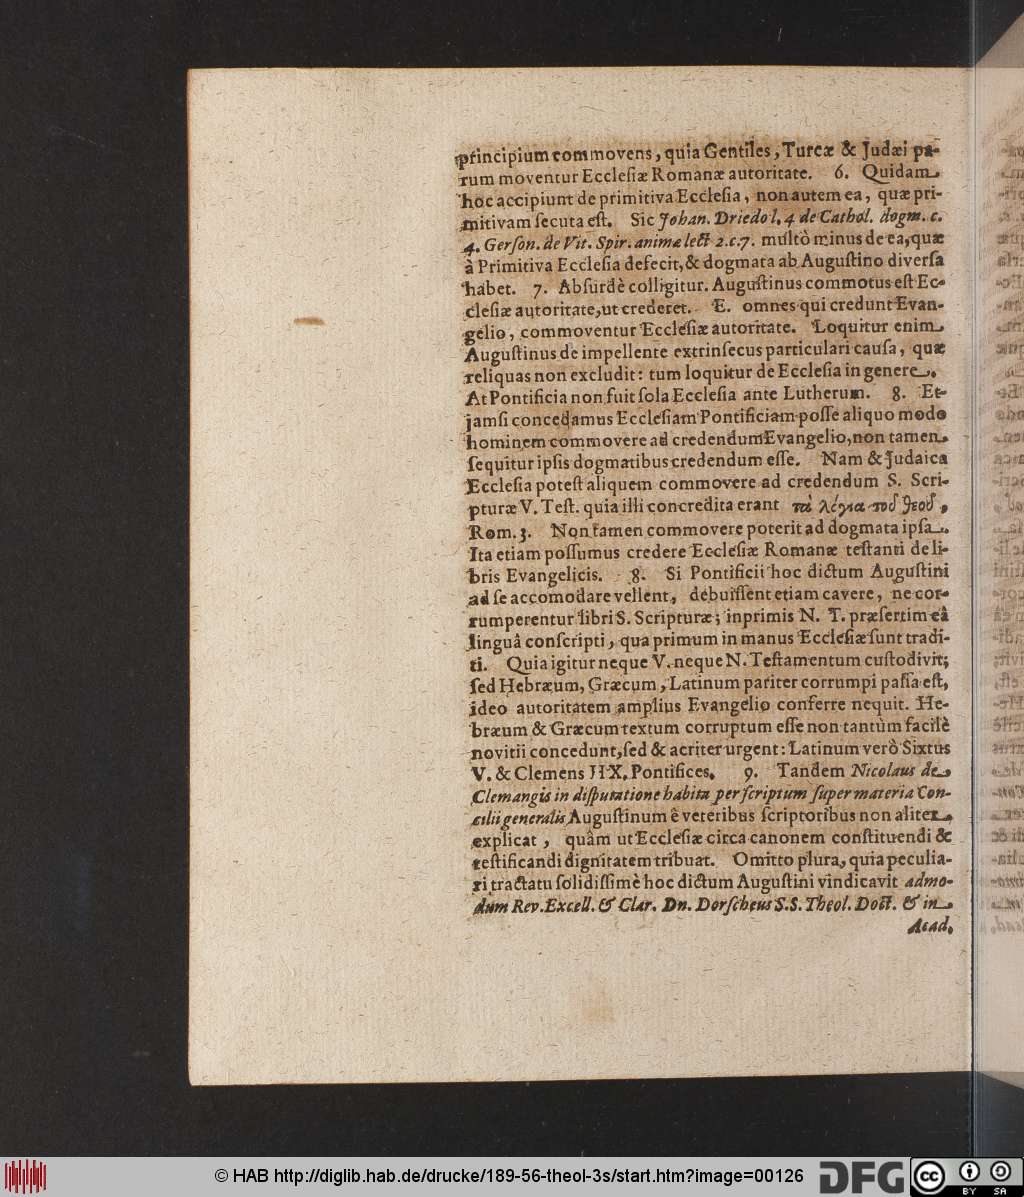 principium commovens, quia Gentiles, Turcæ & Judæi pa-
rum moventur Ecclesiæ Romanæ autoritate. 6. Quidam
hoc accipiunt de primitiva Ecclesia, non autem ea, quæ pri-
mitivam secuta est. Sic Johan. Driedo l. 4 de Cathol. dogm. c.
4. Gerson. de Vit. Spir. animæ lect 2.c.7. multò minus de ea, quæ
à Primitiva Ecclesia defecit, & dogmata ab Augustino diversa
habet. 7. Absurdè colligitur. Augustinus commotus est Ec-
clesiæ autoritate, ut crederet. E. omnes qui credunt Evan-
gelio, commoventur Ecclesiæ autoritate. Loquitur enim
Augustinus de impellente extrinsecus particulari causa, quæ
reliquas non excludit: tum loquitur de Ecclesia in genere.
At Pontificia non fuit sola Ecclesia ante Lutherum. 8. Et-
jamsi concedamus Ecclesiam Pontificiam posse aliquo modo
hominem commovere ad credendum Evangelio, non tamen
sequitur ipsis dogmatibus credendum esse. Nam & Judaica
Ecclesia potest aliquem commovere ad credendum S. Scri-
pturæ V. Test. quia illi concredita erant τὰ λόγια τοῦ θεοῦ,
Rom. 3. Non tamen commovere poterit ad dogmata ipsa.
Ita etiam possumus credere Ecclesiæ Romanæ testanti de li-
bris Evangelicis. 8. Si Pontificii hoc dictum Augustini
ad se accomodare vellent, debuissent etiam cavere, ne cor-
rumperentur libri S. Scripturæ; inprimis N. T. præsertim eâ
linguâ conscripti, qua primum in manus Ecclesiæ sunt tradi-
ti. Quia igitur neque V. neque N. Testamentum custodivit;
sed Hebræum, Græcum, Latinum pariter corrumpi passa est,
ideo autoritatem amplius Evangelio conferre nequit. He-
bræum & Græcum textum corruptum esse non tantùm facilè
novitii concedunt, sed & acriter urgent: Latinum verò Sixtus
V. & Clemens IIX. Pontifices. 9. Tandem Nicolaus de
Clemangis in disputatione habita per scriptum super materia Con-
cilii generalis Augustinum è veteribus scriptoribus non aliter
explicat, quàm ut Ecclesiæ circa canonem constituendi &
testificandi dignitatem tribuat. Omitto plura, quia peculia-
ri tractatu solidissimè hoc dictum Augustini vindicavit admo-
dum Rev. Excell. & Clar. Dn. Dorscheus S.S. Theol. Doct. & in
Acad.
© HAB http://diglib.hab.de/drucke/189-56-theol-3s/start.htm?image=00126
DFG
cc
BY SA